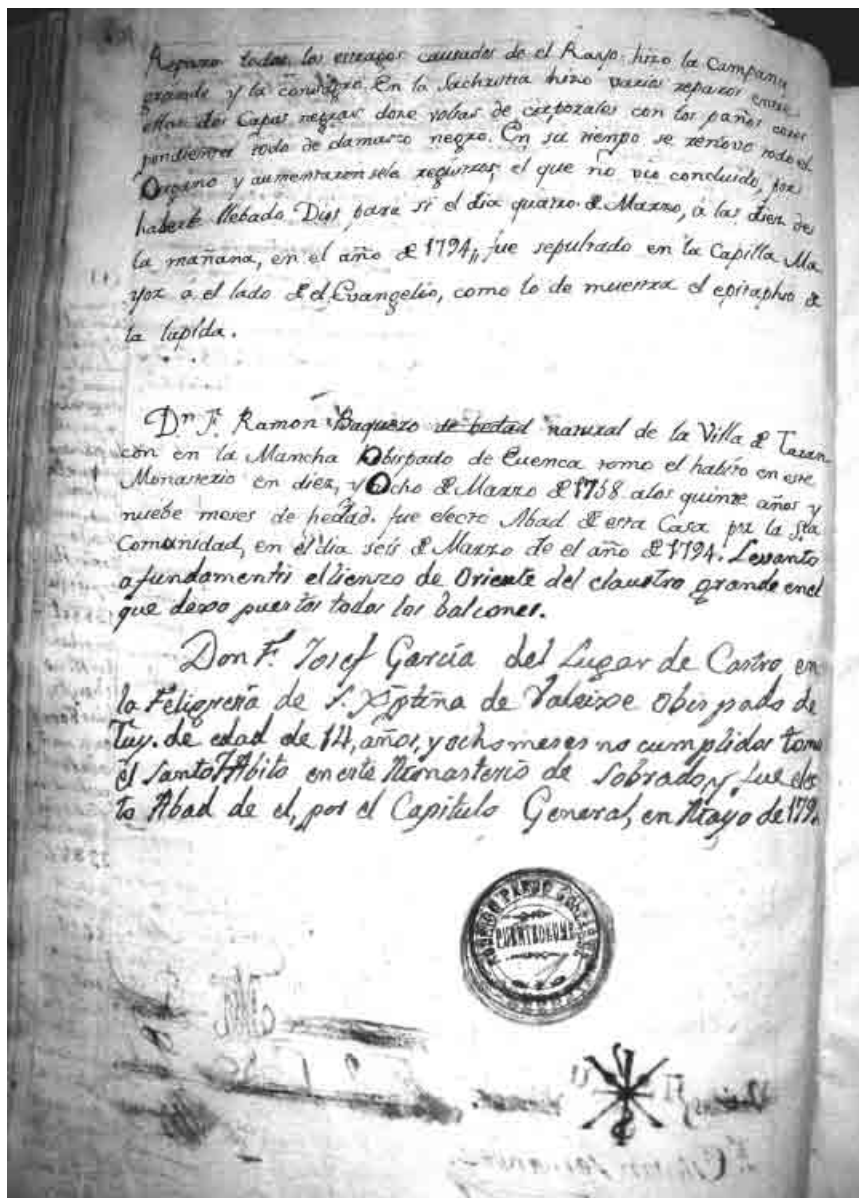 Reparo todos los estragos causados de el Rayo: hizo la Campana
grande y la consagro. En la Sachristia hizo varios reparos entre
ellos dos Capas negras doze volsas de corporales con los paños corres
pondientes todo de damasco negro. En su tiempo se renovo todo el
Organo y aumentaron sele registros, el que no vio concluido, por
haberle llebado Dios para si el dia quatro de Marzo, á las diez de
la mañana, en el año de 1794,, fue sepultado en la Capilla Ma
yor á el lado de el Evangelio, como lo de muestra el epitaphio de
la lapida.
Dn. Fr. Ramon Baquero de hedad natural de la Villa de Taran
con en la Mancha Obispado de Cuenca tomo el habito en este
Monasterio en diez, y Ocho de Marzo de 1758 alos quinze años y
nuebe meses de hedad. fue electo Abad de esta Casa por la Sta
Comunidad, en el dia seis de Marzo de el año de 1794. Levanto
a fundamentis el lienzo de Oriente del claustro grande enel
que dexo puestos todos los balcones.
Don Fr. Josef García del Lugar de Castro en
la Feligresía de S. Xptina de Valeixe Obispado de
Tuy. de edad de 14, años, y ocho meses no cumplidos tomo
el Santo Abito en este Monasterio de Sobrado y fue elec
to Abad de el, por el Capitulo General, en Mayo de 179
PUENTEDEUME